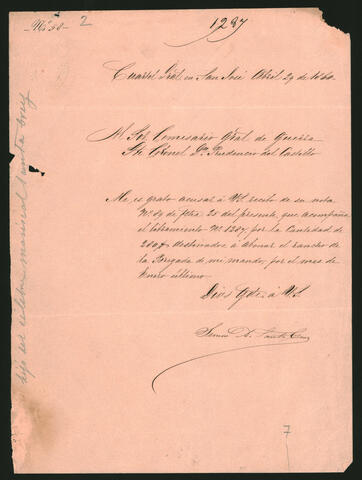 Nº 38-
2
1287
Cuartel Gral en San José Abril 29 de 1860.
Al Sor. Comisario Gral de Guerra
Te. Coronel Dn. Prudencio del Castillo
Me es grato acusar á VS. recibo de su nota
Nº 94 de fcha. 25 del presente, que acompaña
el libramiento Nº 1207 por la Cantidad de
destinados á abonar el rancho de
la Brigada de mi mando, por el mes de
Enero último.
Dios gde. á V.S.
Simon A. Santa Cruz
7
hijo del célebre mariscal Santa Cruz